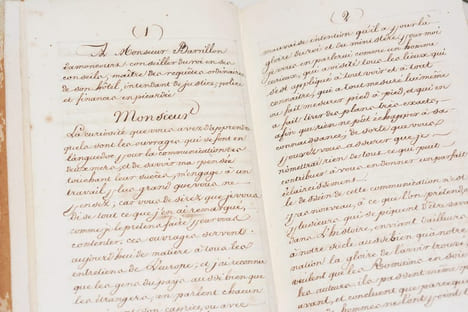 (1)
A Monsieur Barrillon
Lamoncourt, conseiller du roi en ses
conseils, maître des requêtes ordinaires
de son hôtel, intendant de justice, police
et finances, en picardie
Monsieur
La curiosité que vous avez d'apprendre
quels sont les ouvrages qui se font en
languedoc pour la communication des
deux mers, et de savoir ma pensée
touchant leur succès, m'engage à un
travail plus grand que vous ne
pensiez; car vous désirez que je vous
dise tout ce que j'en ai remarqué,
comme je le prétens faire pour vous
contenter. ces ouvrages servent
aujourd'hui de matière à tous les
entretiens de l'Europe, et j'ai reconnu
que les gens du pays aussi bien que
les étrangers, en parlent chacun
son caprice, ou avec
(2)
mauvaise intention qu'il a pour la
gloire du roi et du ministère, pour moi
je vous en parlerai comme un homme
curieux, qui a visité tous les lieux, qui
s'est appliqué à tout voir et à tout
connaître, qui a tout mesuré lui même
ou fait mesurer pied à pied, et qui en
a fait tirer des plans très exacts,
afin que rien ne pût échapper à sa
connaissance, de sorte que vous
pouvez vous assurer que je
n'omettrai rien de tout ce qui peut
contribuer à vous en donner un parfait
éclaircissement.
le dessein de cette communication n'est
pas nouveau, à ce que l'on prétend
plusieurs, qui se piquent d'être savans
dans l'histoire, envient d'ailleurs
à notre siècle aussi bien qu'à notre
nation la gloire de l'avoir trouvé,
veulent que les Romains en soient
les auteurs. ils passent même plus
avant, et concluent que parce que
hommes ne l'ont